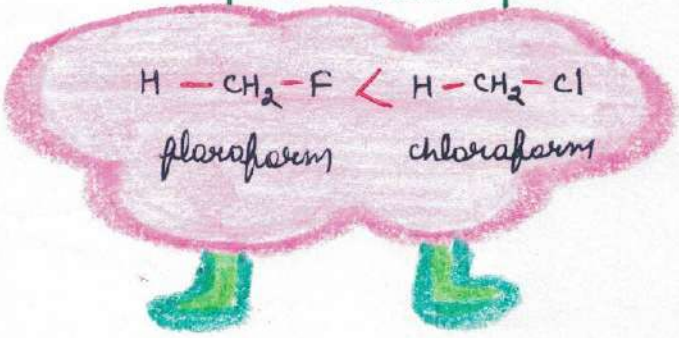 H — CH₂ — F < H — CH₂ — Cl
floroform chloroform